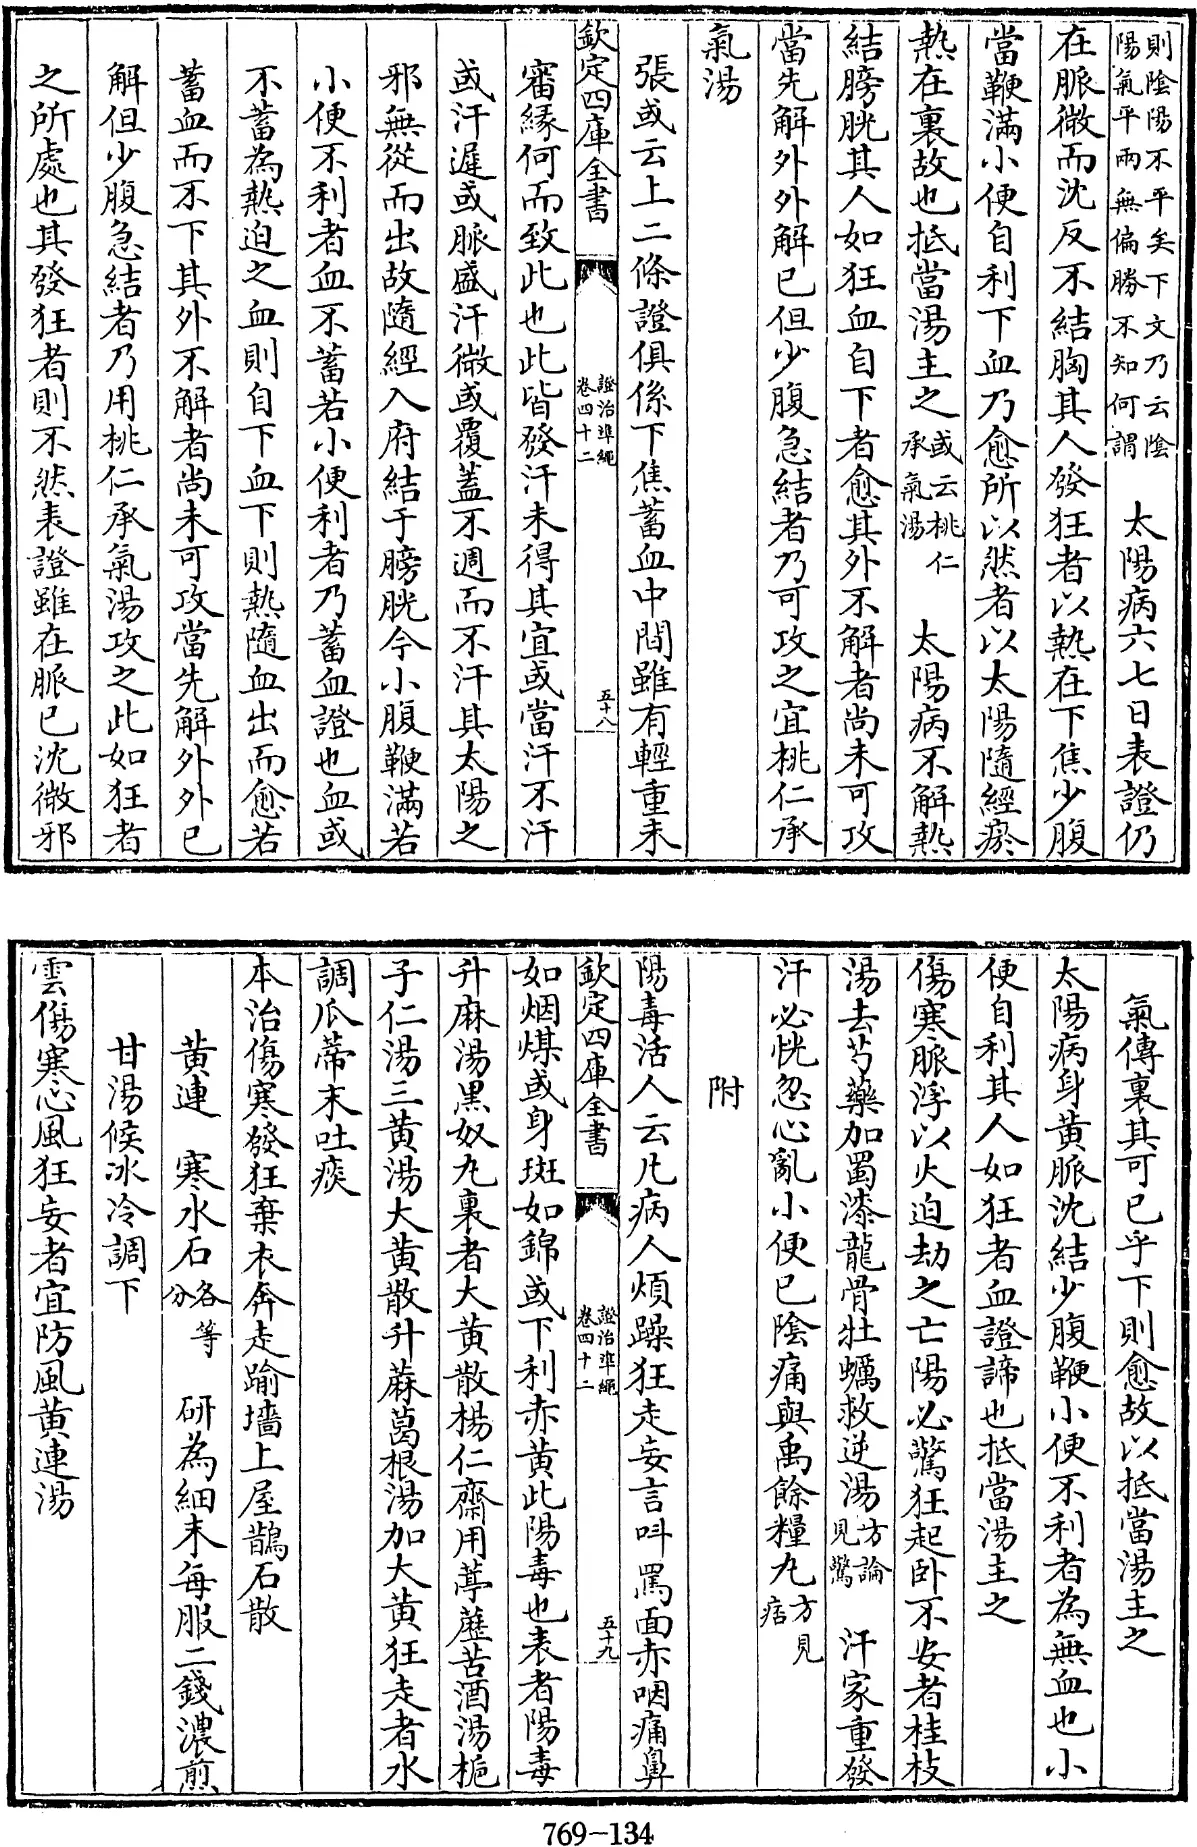 則陰陽不平矣下文乃云陰
陽氣平兩無偏勝不知何謂
太陽病六七日表證仍
在脈微而沈反不結胸其人發狂者以熱在下焦少腹
當鞕滿小便自利下血乃愈所以然者以太陽隨經瘀
熱在裏故也抵當湯主之
或云桃仁
承氣湯
太陽病不解熱
結膀胱其人如狂血自下者愈其外不解者尚未可攻
當先解外外解已但少腹急結者乃可攻之宜桃仁承
氣湯
張或云上二條證俱係下焦蓄血中間雖有輕重未
欽定四庫全書
證治準繩
卷四十二
五十八
審緣何而致此也此皆發汗未得其宜或當汗不汗
或汗遲或脈盛汗微或覆蓋不週而不汗其太陽之
邪無從而出故隨經入府結于膀胱今小腹鞕滿若
小便不利者血不蓄若小便利者乃蓄血證也血或
不蓄為熱迫之血則自下血下則熱隨血出而愈若
蓄血而不下其外不解者尚未可攻當先解外外已
解但少腹急結者乃用桃仁承氣湯攻之此如狂者
之所處也其發狂者則不然表證雖在脈已沈微邪
氣傳裏其可已乎下則愈故以抵當湯主之
太陽病身黃脈沈結少腹鞕小便不利者為無血也小
便自利其人如狂者血證諦也抵當湯主之
傷寒脈浮以火迫劫之亡陽必驚狂起卧不安者桂枝
湯去芍藥加蜀漆龍骨牡蠣救逆湯
方論
見驚
汗家重發
汗必恍忽心亂小便已陰痛與禹餘糧丸
方見
痞
附
陽毒活人云凡病人煩躁狂走妄言叫罵面赤咽痛鼻
欽定四庫全書
證治準繩
卷四十二
五十九
如烟煤或身斑如錦或下利赤黃此陽毒也表者陽毒
升麻湯黑奴丸裏者大黃散楊仁齋用葶藶苦酒湯梔
子仁湯三黃湯大黃散升蔴葛根湯加大黃狂走者水
調瓜蒂末吐痰
本治傷寒發狂棄衣奔走踰墻上屋鵲石散
黃連　寒水石
各等
分
研為細末每服二錢濃煎
甘湯候冰冷調下
雲傷寒心風狂妄者宜防風黃連湯
769-134